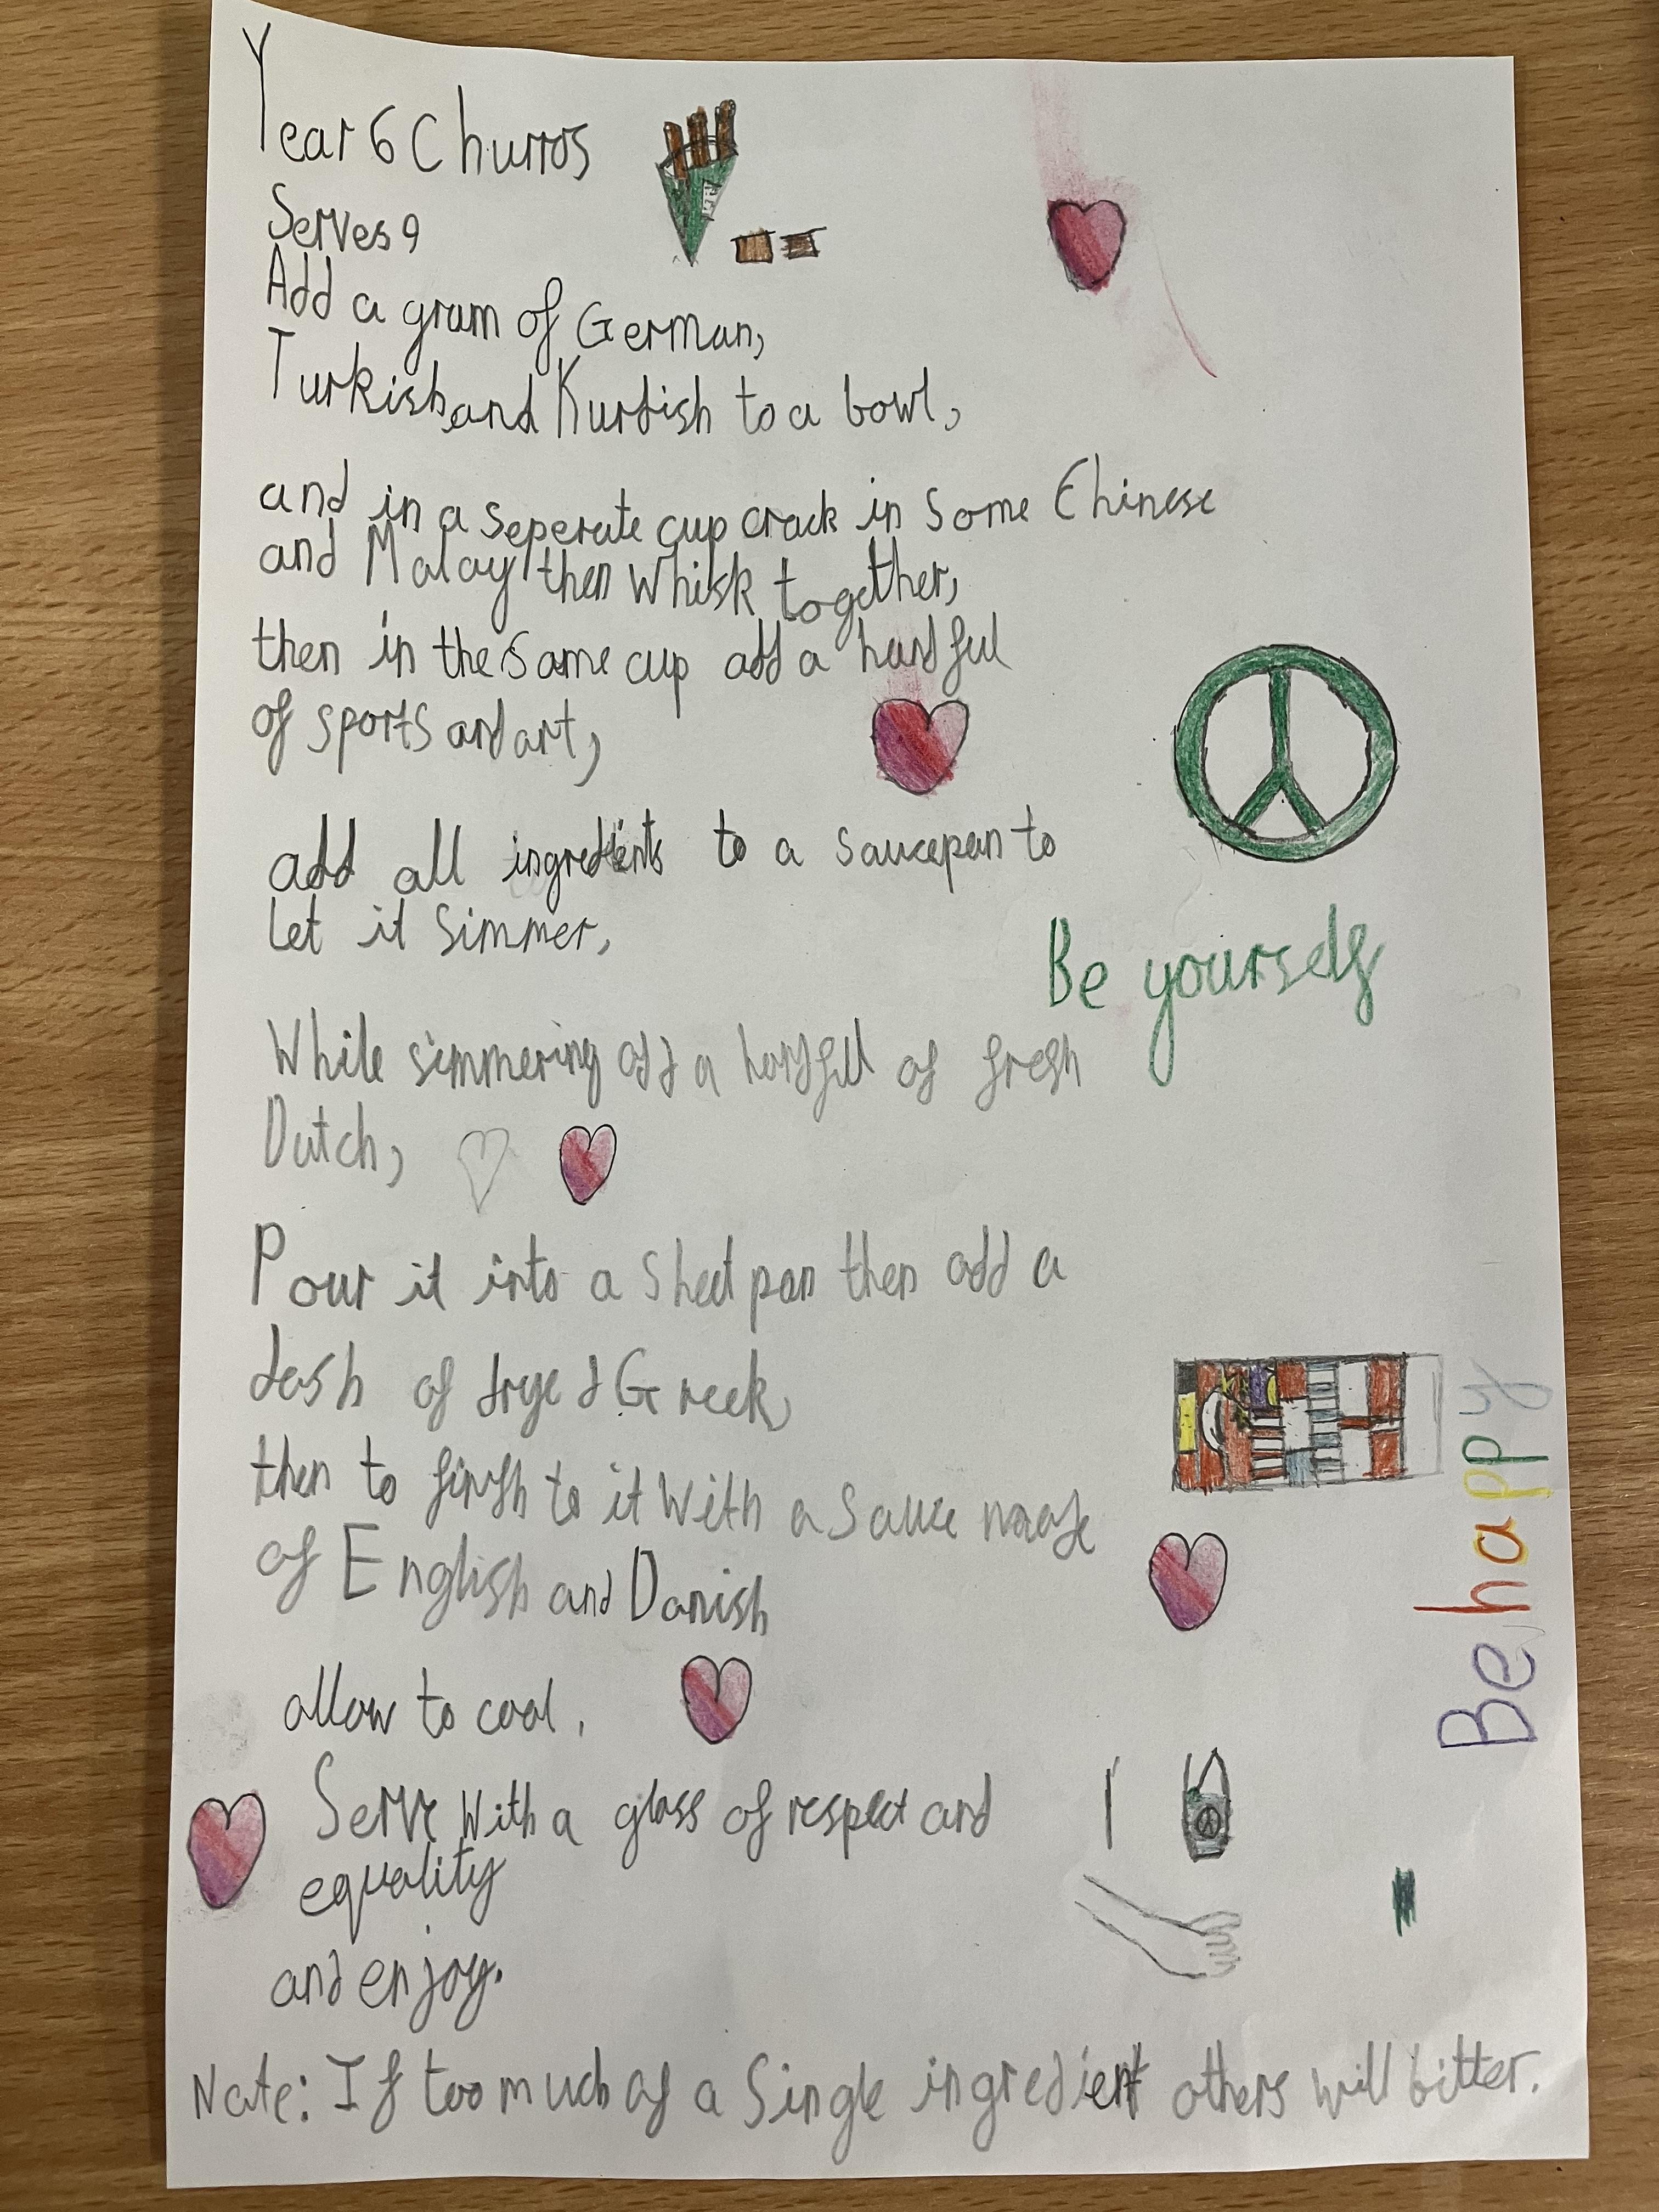 Year 6 Churros
Serves 9
Add a gram of German,
Turkish and Kurdish to a bowl,
and in a seperate cup crack in some Chinese
and Malay then whisk together,
then in the same cup add a handful
of sports and art,
add all ingredients to a saucepan to
Let it simmer,
Be yourself
While simmering add a handful of fresh
Dutch,
Pour it into a sheet pan then add a
dash of dryed Greek,
then to finish to it with a sauce made
of English and Danish
allow to cool.
Be happy
Serve with a glass of respect and
equality
and enjoy.
Note: If too much of a single ingredient others will bitter.